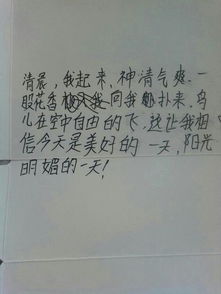 清晨，我起来，神清气爽.一
股花香向我扑来，鸟
儿在空中自由的飞，这让我相
信今天是美好的一天，阳光
明媚的一天！